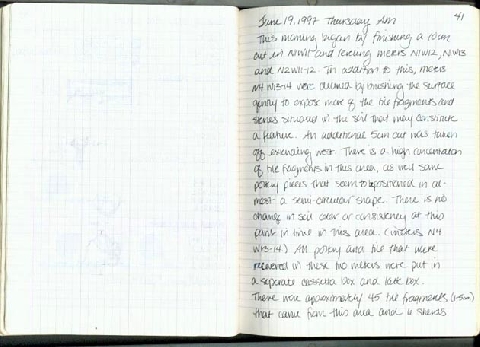 41
June 19, 1997 Thursday AM
This morning began by finishing a 10cm
out in N1W11 and leveling meters N1W12, N1W13
and N2W11-12. In addition to this, meters
N4 W13-14 were cleaned by brushing the surface
gently to expose more of the tile fragments and
stones situated in the soil that may constitute
a feature. An additional 5cm out was taken
off extending west. There is a high concentration
of tile fragments in this area, as well some
pottery pieces that seem to be positioned in al-
most a semi-circular shape. There is no
change in soil color or consistency at this
point in time in this area. (meters N4
W13-14.) All pottery and tile that were
recovered in these two meters were put in
a separate cassetta box and late box.
There were approximately 45 tile fragments
that came from this area and 6 sherds